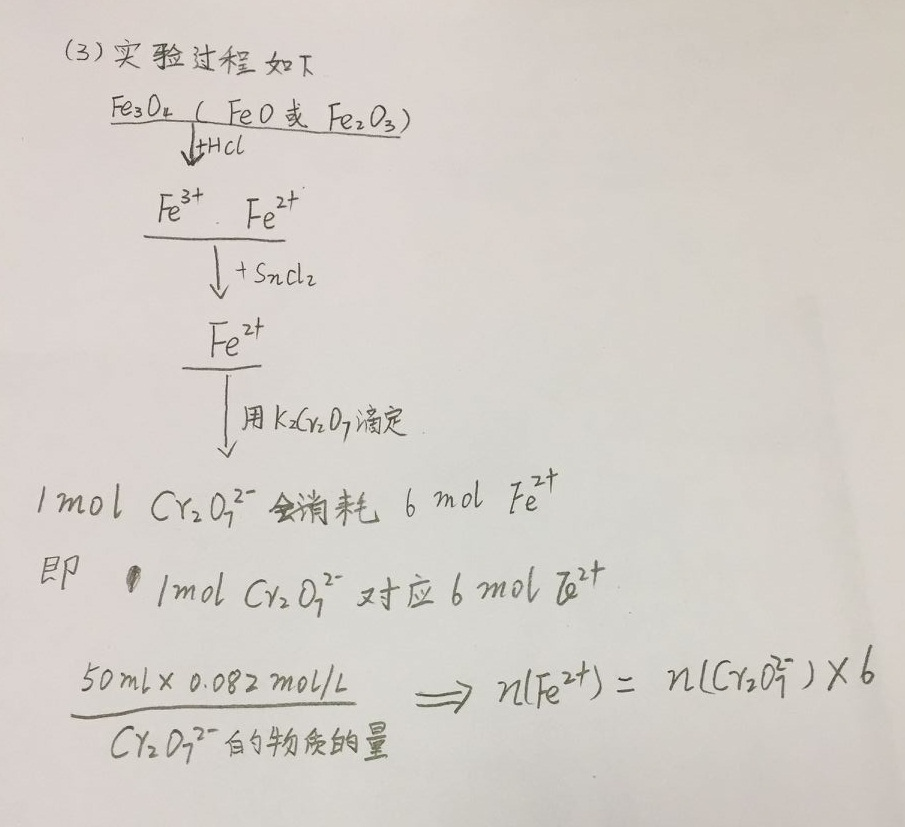 (3) 实验过程如下
Fe₃O₄ ( FeO 或 Fe₂O₃)
+HCl
Fe³⁺ Fe²⁺
+SnCl₂
Fe²⁺
用 K₂Cr₂O₇ 滴定
1 mol Cr₂O₇²⁻ 会消耗 6 mol Fe²⁺
即 1mol Cr₂O₇²⁻ 对应 6 mol Fe²⁺
50ml × 0.082 mol/L ⟹ n(Fe²⁺) = n(Cr₂O₇²⁻) × 6
Cr₂O₇²⁻ 的物质的量